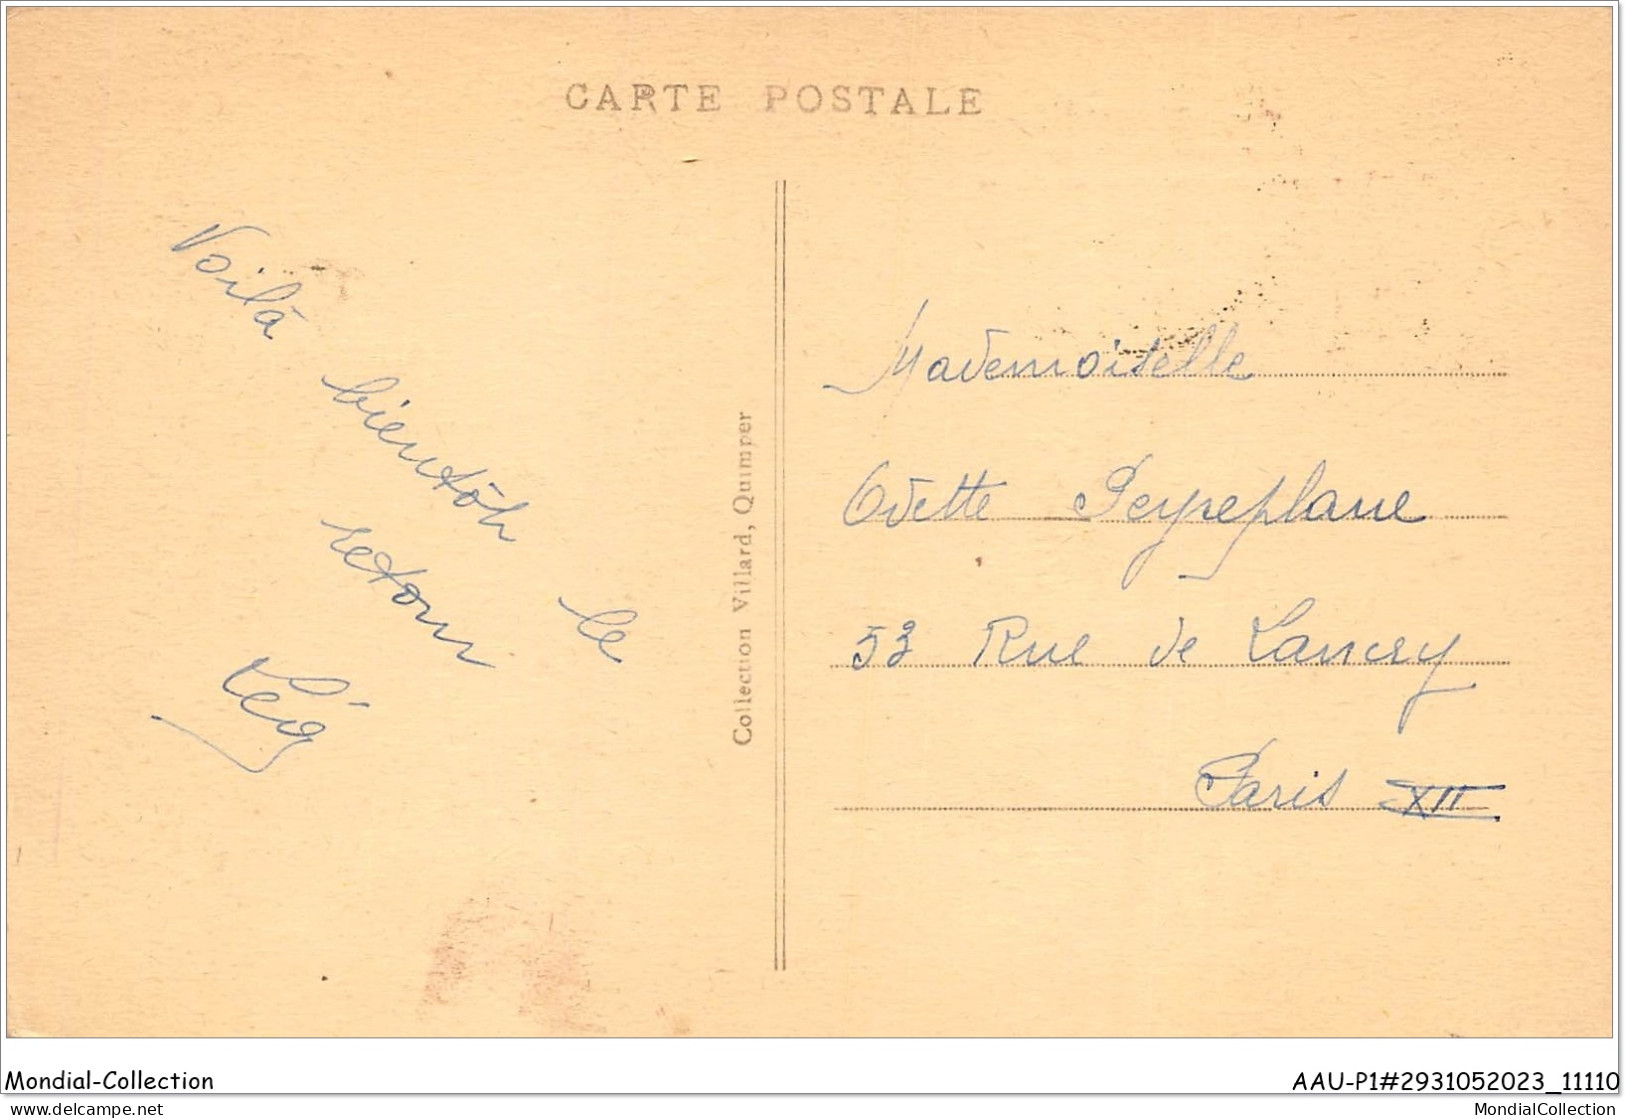 CARTE POSTALE
Voilà
bientôt le
retour
Collection Villard, Quimper
Mademoiselle
Odette Peyreplane
53 Rue de Lancry
Paris XII
Mondial-Collection
AAU-P1#2931052023_11110
delcampe.net
MondialCollection